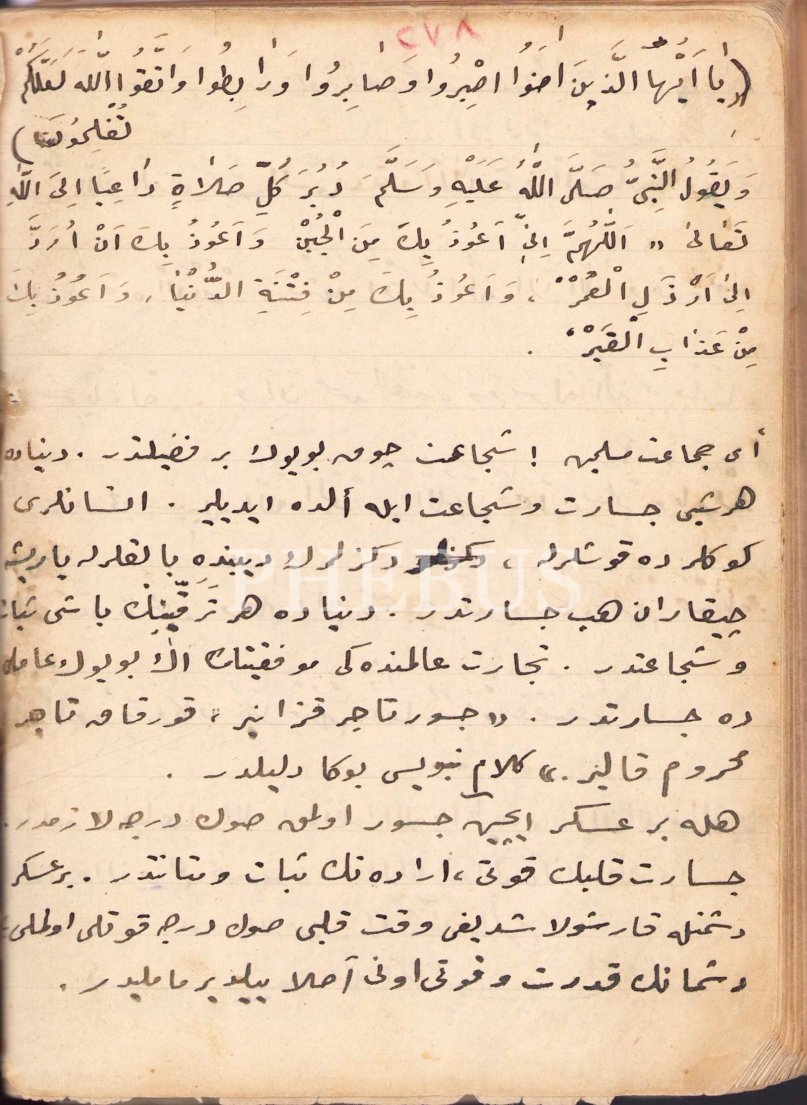 ٨٧٢
(يَا اَيُّهَا الَّذِينَ اٰمَنُوا اصْبِرُوا وَصَابِرُوا وَرَابِطُوا وَاتَّقُوا اللّٰهَ لَعَلَّكُمْ
تُفْلِحُونَ)
وَيَقُولُ النَّبِيُّ صَلَّى اللّٰهُ عَلَيْهِ وَسَلَّمَ دُبُرَ كُلِّ صَلَاةٍ دَاعِيًا اِلَى اللّٰهِ
تَعَالٰى « اَللّٰهُمَّ اِنِّي اَعُوذُ بِكَ مِنَ الْجُبْنِ وَاَعُوذُ بِكَ اَنْ اُرَدَّ
اِلٰى اَرْذَلِ الْعُمُرْ ، وَاَعُوذُ بِكَ مِنْ فِتْنَةِ الدُّنْيَا ، وَاَعُوذُ بِكَ
مِنْ عَذَابِ الْقَبْرْ » .
أى جماعت مسلمين ! شجاعت چوق بويوك بر فضيلتدر . دنياده
هرشيى جسارت وشجاعت ايله ألده ايديلير . انسانلرى
كوكلرده قوشلرله ، دكزلرك ديبنده بالقلرله ياريشه
چيقاران هب جسارتدر . دنياده هر ترقّينك باشى ثبات
وشجاعتدر . تجارت عالمنده كى موفقيتك اڭ بويوك عاملى
ده جسارتدر . « جسور تاجر قزانير ، قورقاق تاجر
محروم قالير . » كلام نبويسى بوكا دليلدر .
هله بر عسكر ايچين جسور اولمق صوك درجه لازمدر .
جسارت قلبك قوتى ، اراده نك ثبات ومتانتدر . بر عسكر
دشمنله قارشولاشديغى وقت قلبى صوك درجه قوتلى اولملى ،
دشمانك قدرت وقوتى اونى أصلا ييلديرمامليدر .
PHEBUS